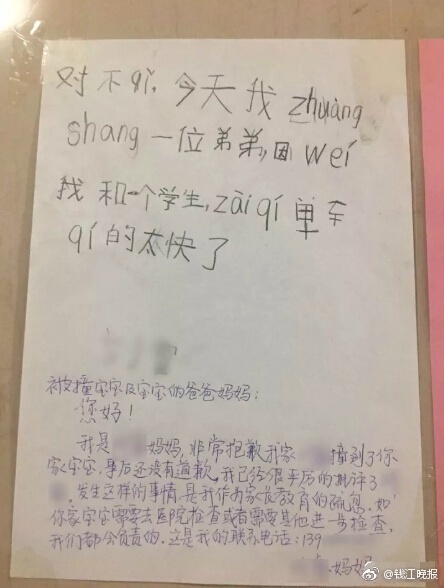 对不qǐ，今天我zhuàng
shang一位弟弟，因wéi
我和一个学生，zài qí单车
qí的太快了
被撞宝宝及宝宝的爸爸妈妈：
您好！
我是 妈妈，非常抱歉我家 撞到了你
家宝宝，事后还没有道歉，我已经很严厉的批评了
，发生这样的事情，是我作为家长教育的疏忽，如
你家宝宝需要去医院检查或者需要其他进一步检查，
我们都会负责的，这是我的联系电话：139
妈妈
@钱江晚报